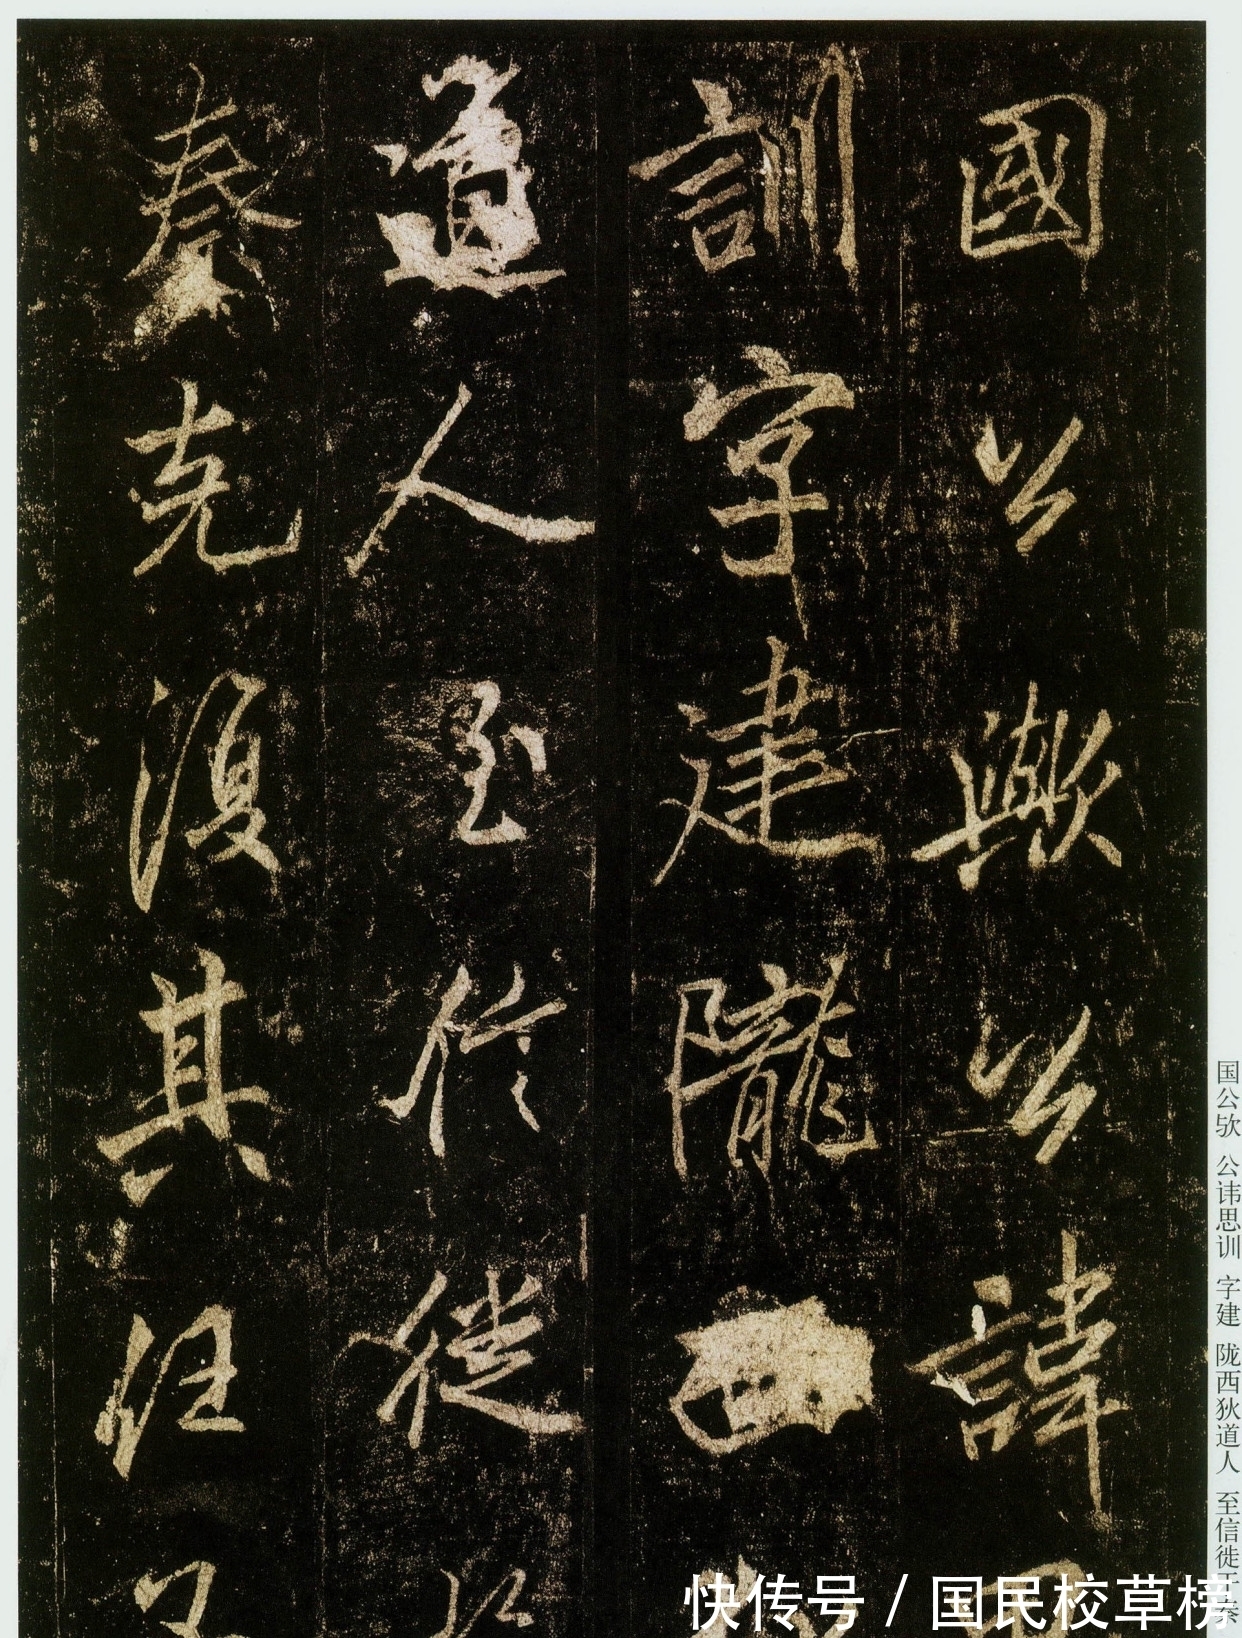 國公歟公諱
訓字建隴西
道人至信徙
秦克復其任
国公欤 公讳思训 字建 陇西狄道人 至信徙于秦
快传号 / 国民校草榜